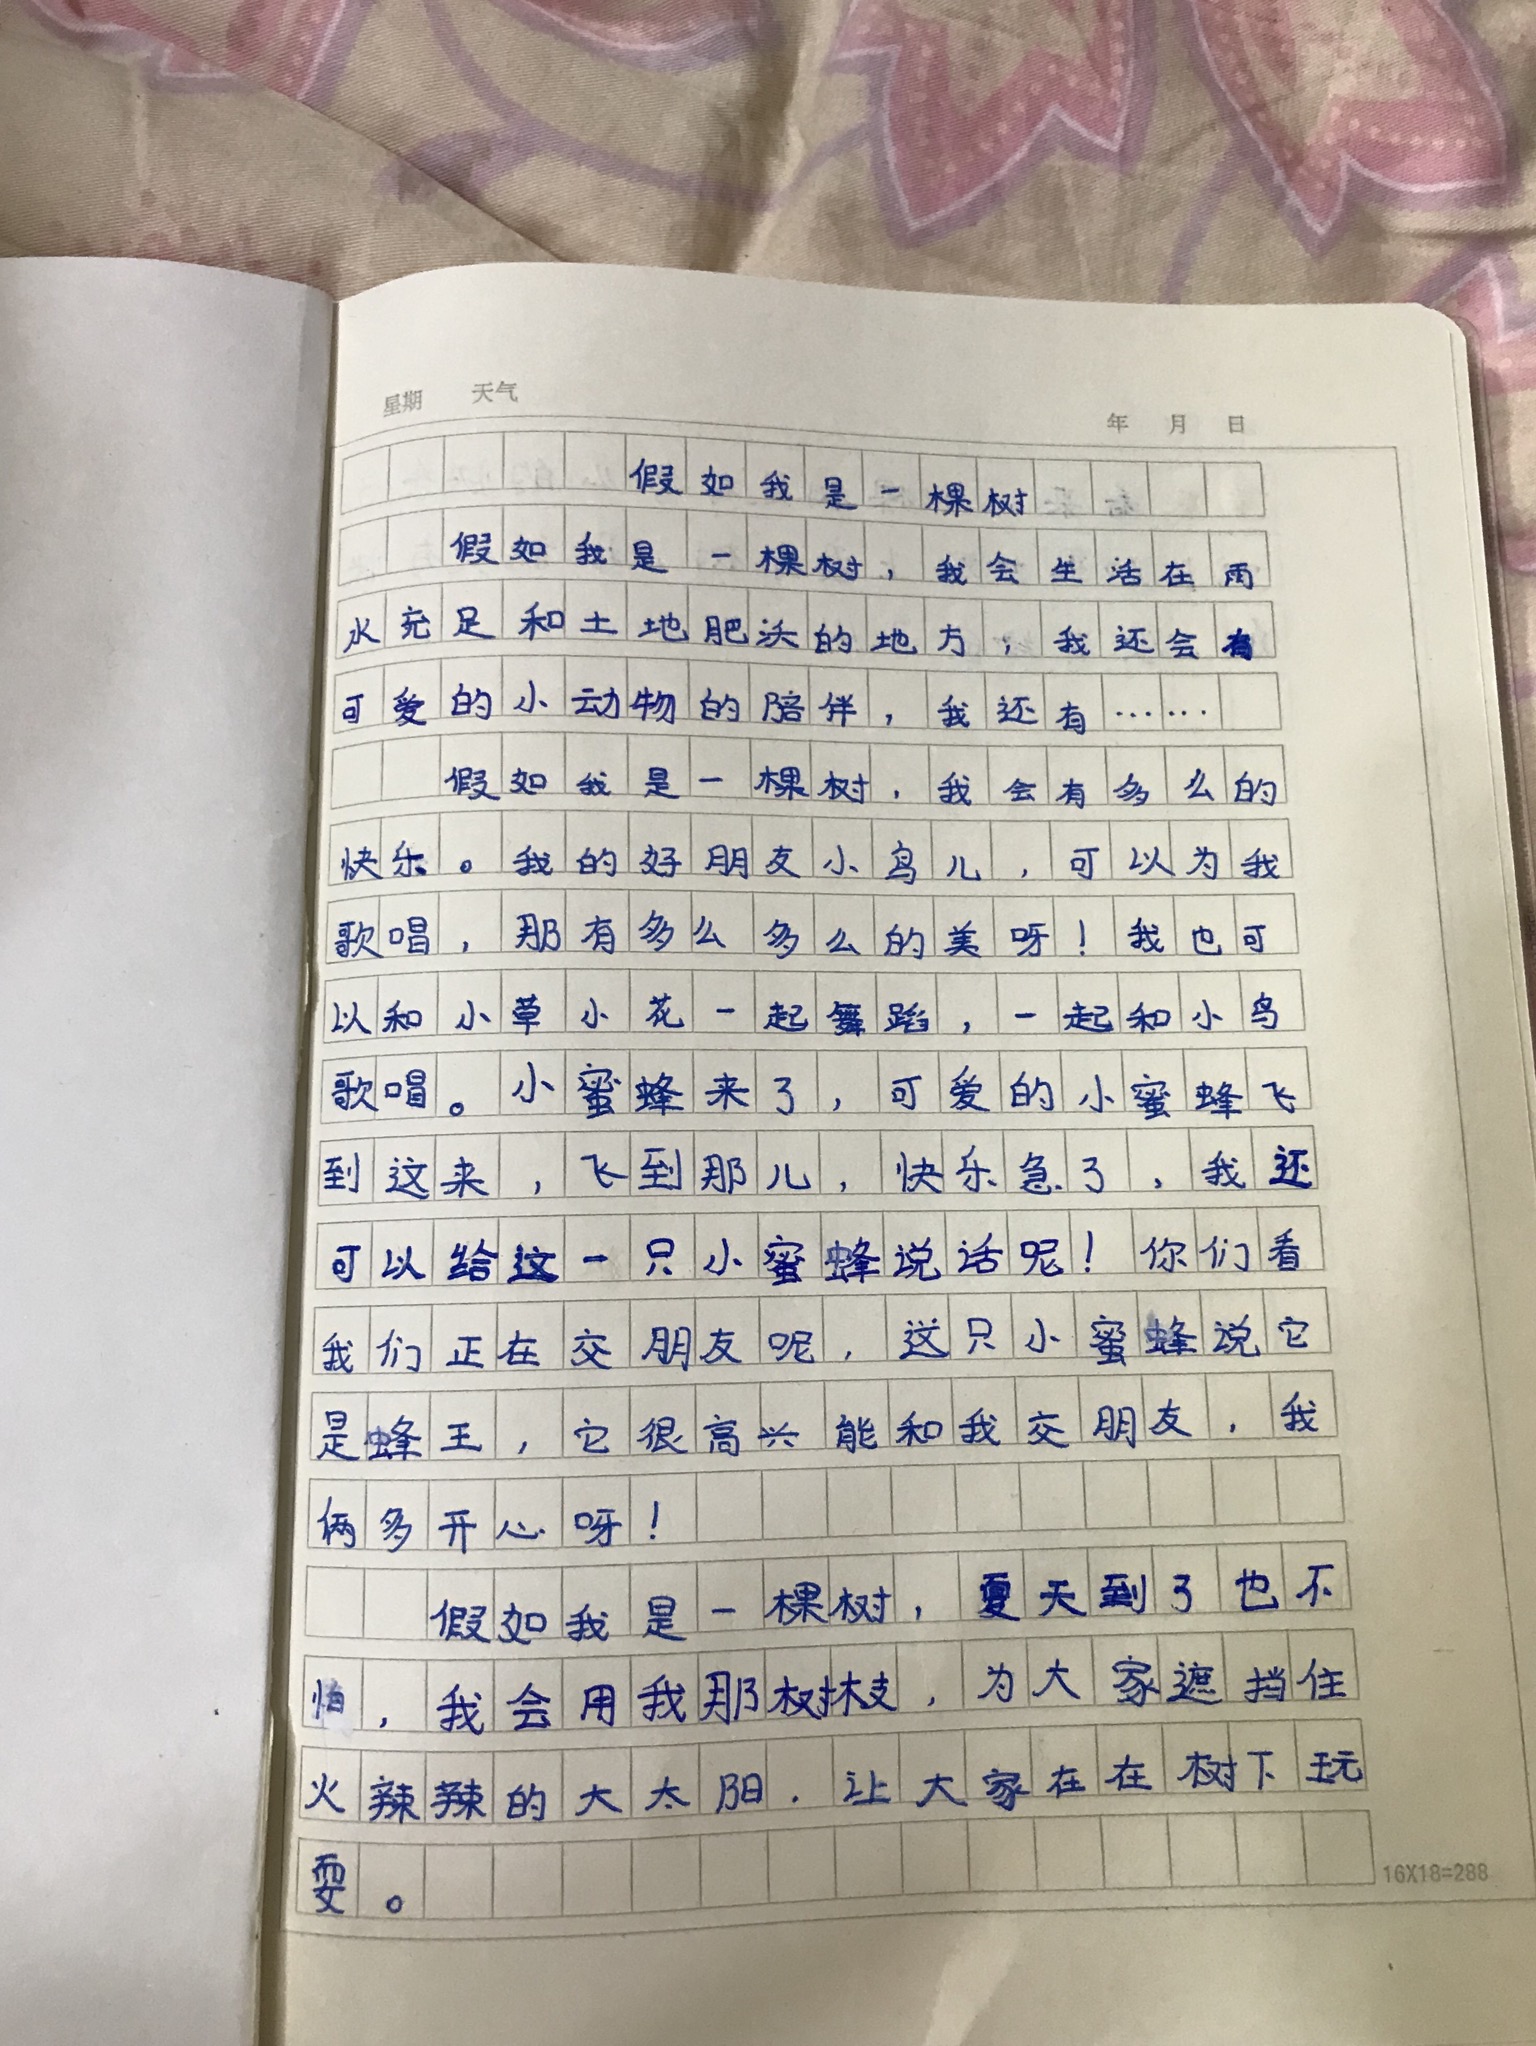 星期 天气
年 月 日
假如我是一棵树
假如我是一棵树，我会生活在雨
水充足和土地肥沃的地方；我还会有
可爱的小动物的陪伴，我还有……
假如我是一棵树，我会有多么的
快乐。我的好朋友小鸟儿，可以为我
歌唱，那有多么多么的美呀！我也可
以和小草小花一起舞蹈，一起和小鸟
歌唱。小蜜蜂来了，可爱的小蜜蜂飞
到这来，飞到那儿，快乐急了，我还
可以给这一只小蜜蜂说话呢！你们看
我们正在交朋友呢，这只小蜜蜂说它
是蜂王，它很高兴能和我交朋友，我
俩多开心呀！
假如我是一棵树，夏天到了也不
怕，我会用我那树枝，为大家遮挡住
火辣辣的大太阳．让大家在在树下玩
耍。
16X18=288